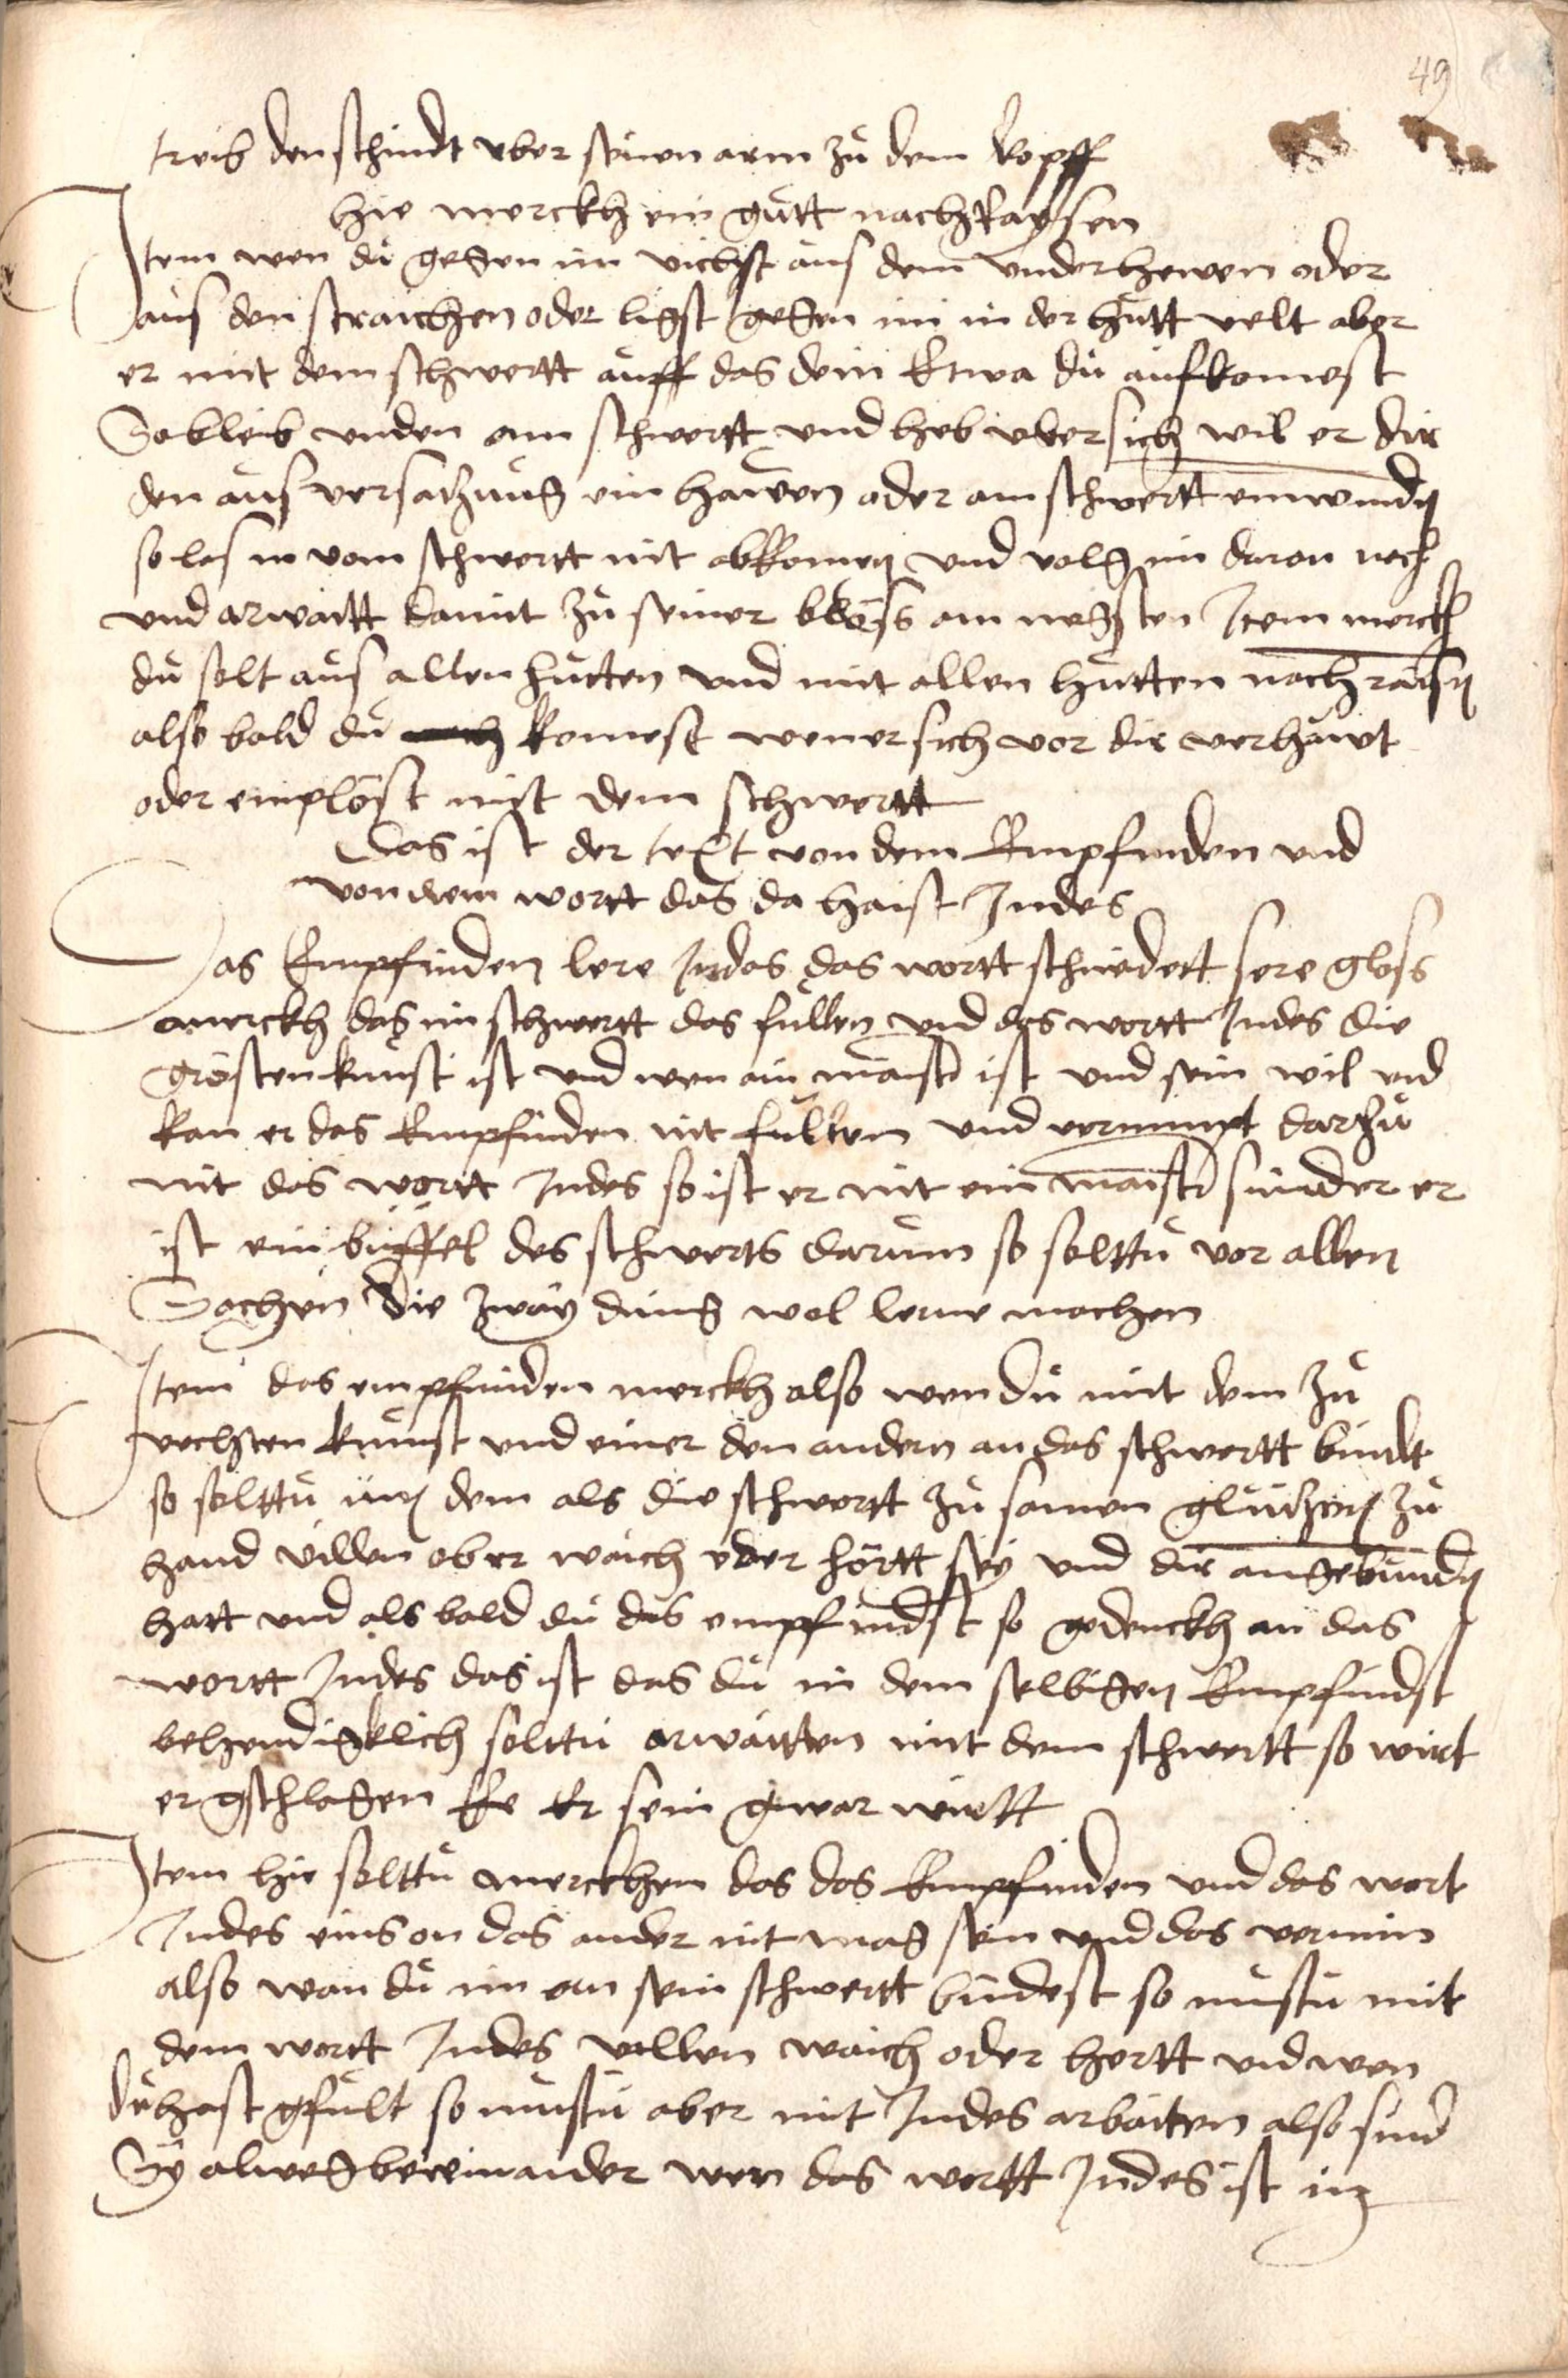 49
treib den schindt vber seinen arm zů dem kopff
hie merckh ein gůtt nachraysen
Item wen dů gegen im vichst aus dem vnderhewen oder
aus den straichen oder ligst gegen im in der hůtt velt aber
er mit dem schwertt auff das dein Ee wa dů aufkomest
So bleib vnden am schwertt vnd heb vbersich wil er dir
den aus versatzung ein hawen oder am schwertt einwindn
so las in vom schwertt nit abkomen vnd volg im daran noch
vnd arwaitt damit zů seiner blöss am negsten Item merckh
dů solt aus allen hůtten vnd mit allen hůtten nachraisn
also bald dů komest wen er sich vor dir verhawt
oder emplöst mit dem schwertt
Das ist der text von dem Empfinden vnd
von dem wortt das da haist Indes
Das Empfinden lere Indas das wortt schneidett sere gloss
merckh das im schwertt das fullen vnd das wortt Indes die
grösten kunst ist vnd wen ain maistr ist vnd sein wil vnd
kan er das Empfinden nit fullem vnd vernimpt darzů
nit das wortt Indes so ist er nit ein maistr sunder er
ist ein büffel des schwerts darum so solttů vor allen
Sachen die zway ding wol lerne machen
Item das empfinden merckh also wen dů mit dem zů
vechten kumst vnd einer den andern an das schwertt bindt
so solttů inn dem als die schwertt zů samen glützen zů
hand villen ob er waich oder hörtt sey vnd dir angebundn
hatt vnd als bald dů das empfindst so gedenckh an das
wortt Indes das ist das dů in dem selbigen Empfindst
behendigklich solttu arwaitten mit dem schwertt so wirt
er gschlagen Ee Er sein gwar wirtt
Item hie solttů merckhen das das Empfinden vnd das wort
Indes eins on das ander nit mag sein vnd das vernim
also wan dů im an sein schwertt bindest so mustu mit
dem wortt Indes vullen waich oder hertt vnd wen
dů hast gfult so mustu aber mit Indes arbaiten also sind
Sy alweg bei einander wen das wortt Indes ist in